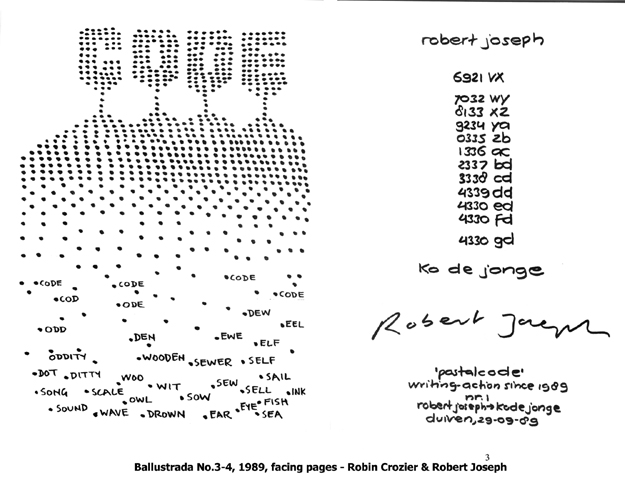 CODE
CODE
CODE
CODE
CODE
COD
ODE
DEW
EEL
ODD
DEN
EWE
ELF
ODDITY
WOODEN
SEWER
SELF
DOT
DITTY
WOO
SAIL
WIT
SEW
SONG
SCALE
SELL
INK
OWL
SOW
EYE
FISH
SOUND
WAVE
DROWN
EAR
SEA
robert joseph
6921 VX
7032 WY
8133 XZ
9234 ya
0335 zb
1336 ac
2337 bd
3338 cd
4339 dd
4330 ed
4330 fd
4330 gd
Ko de jonge
Robert Joseph
'postalcode'
writing-action since 1989
nr. 1
robert joseph→ko de jonge
duiven, 29-09-89
3
Ballustrada No.3-4, 1989, facing pages - Robin Crozier & Robert Joseph